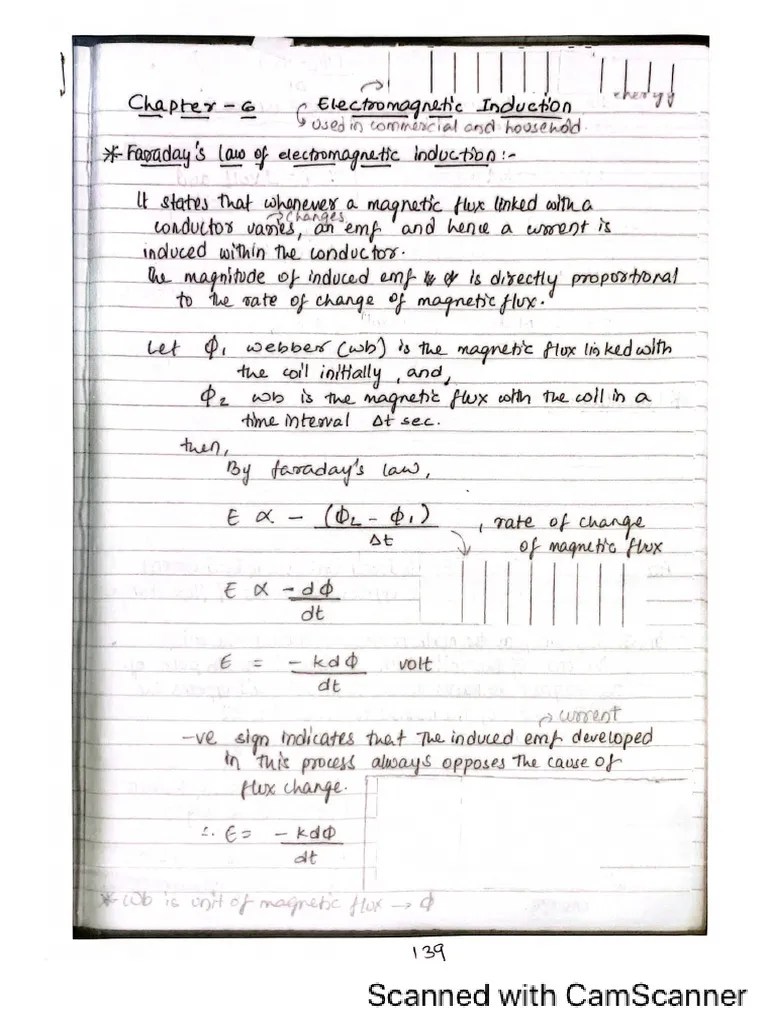 energy
Chapter - 6 Electromagnetic Induction
used in commercial and household.
* Faraday's law of electromagnetic induction :-
It states that whenever a magnetic flux linked with a
changes
conductor varies, an emf and hence a current is
induced within the conductor.
The magnitude of induced emf is directly proportional
to the rate of change of magnetic flux.
Let Φ1 webber (wb) is the magnetic flux linked with
the coil initially, and,
Φ2 wb is the magnetic flux with the coil in a
time interval Δt sec.
then,
By faraday's law,
E ∝ - (Φ2 - Φ1) , rate of change
Δt of magnetic flux
E ∝ - dΦ
dt
E = - kdΦ volt
dt
current
-ve sign indicates that the induced emf developed
in this process always opposes the cause of
flux change.
∴ E = - kdΦ
dt
* wb is unit of magnetic flux → Φ
139
Scanned with CamScanner